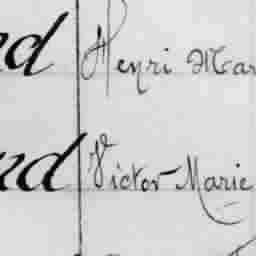 nd Henri Mar
nd Victor-Marie